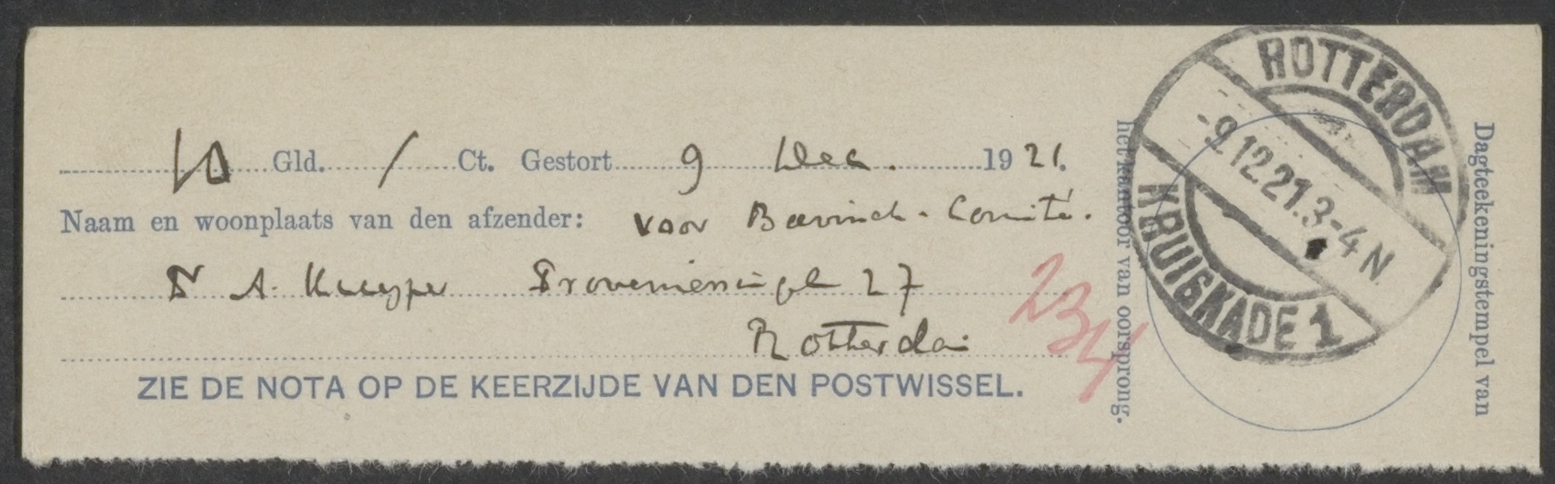 10 Gld. / Ct. Gestort 9 Dec. 1921.
Naam en woonplaats van den afzender: voor Bavinck-Comité.
Dr A. Kuyper Provenierssingel 27
Rotterdam
ZIE DE NOTA OP DE KEERZIJDE VAN DEN POSTWISSEL.
234
Dagteekeningstempel van
het kantoor van oorsprong.
ROTTERDAM
-9.12.21.3-4N
KRUISKADE 1